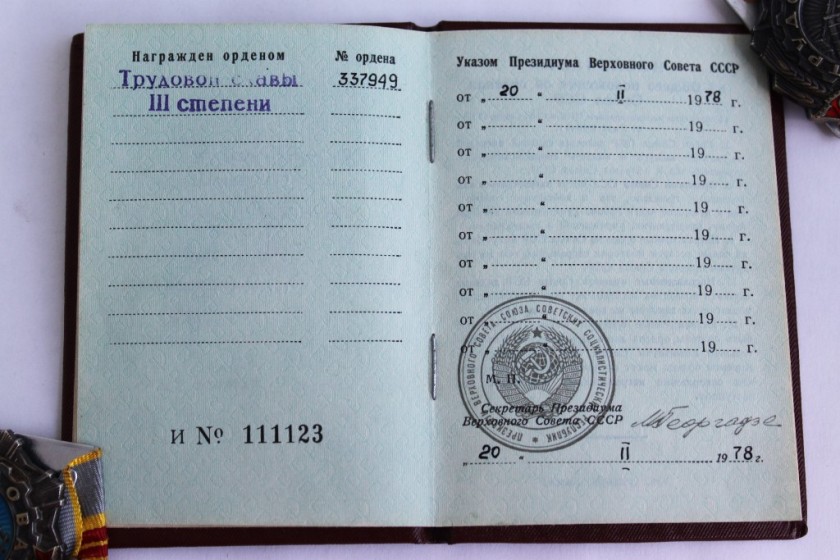 Награжден орденом
№ ордена
Трудовой славы
337949
III степени
И № 111123
Указом Президиума Верховного Совета СССР
от „ 20 “ II 1978 г.
от „ “ 19 г.
от „ “ 19 г.
от „ “ 19 г.
от „ “ 19 г.
от „ “ 19 г.
от „ “ 19 г.
от „ “ 19 г.
от „ “ 19 г.
от „ “ 19 г.
ПРЕЗИДИУМ ВЕРХОВНОГО СОВЕТА СОЮЗА СОВЕТСКИХ СОЦИАЛИСТИЧЕСКИХ РЕСПУБЛИК
М. П.
Секретарь Президиума
Верховного Совета СССР
М Георгадзе
„ 20 “ II 1978 г.
ОВА
ТРУДА